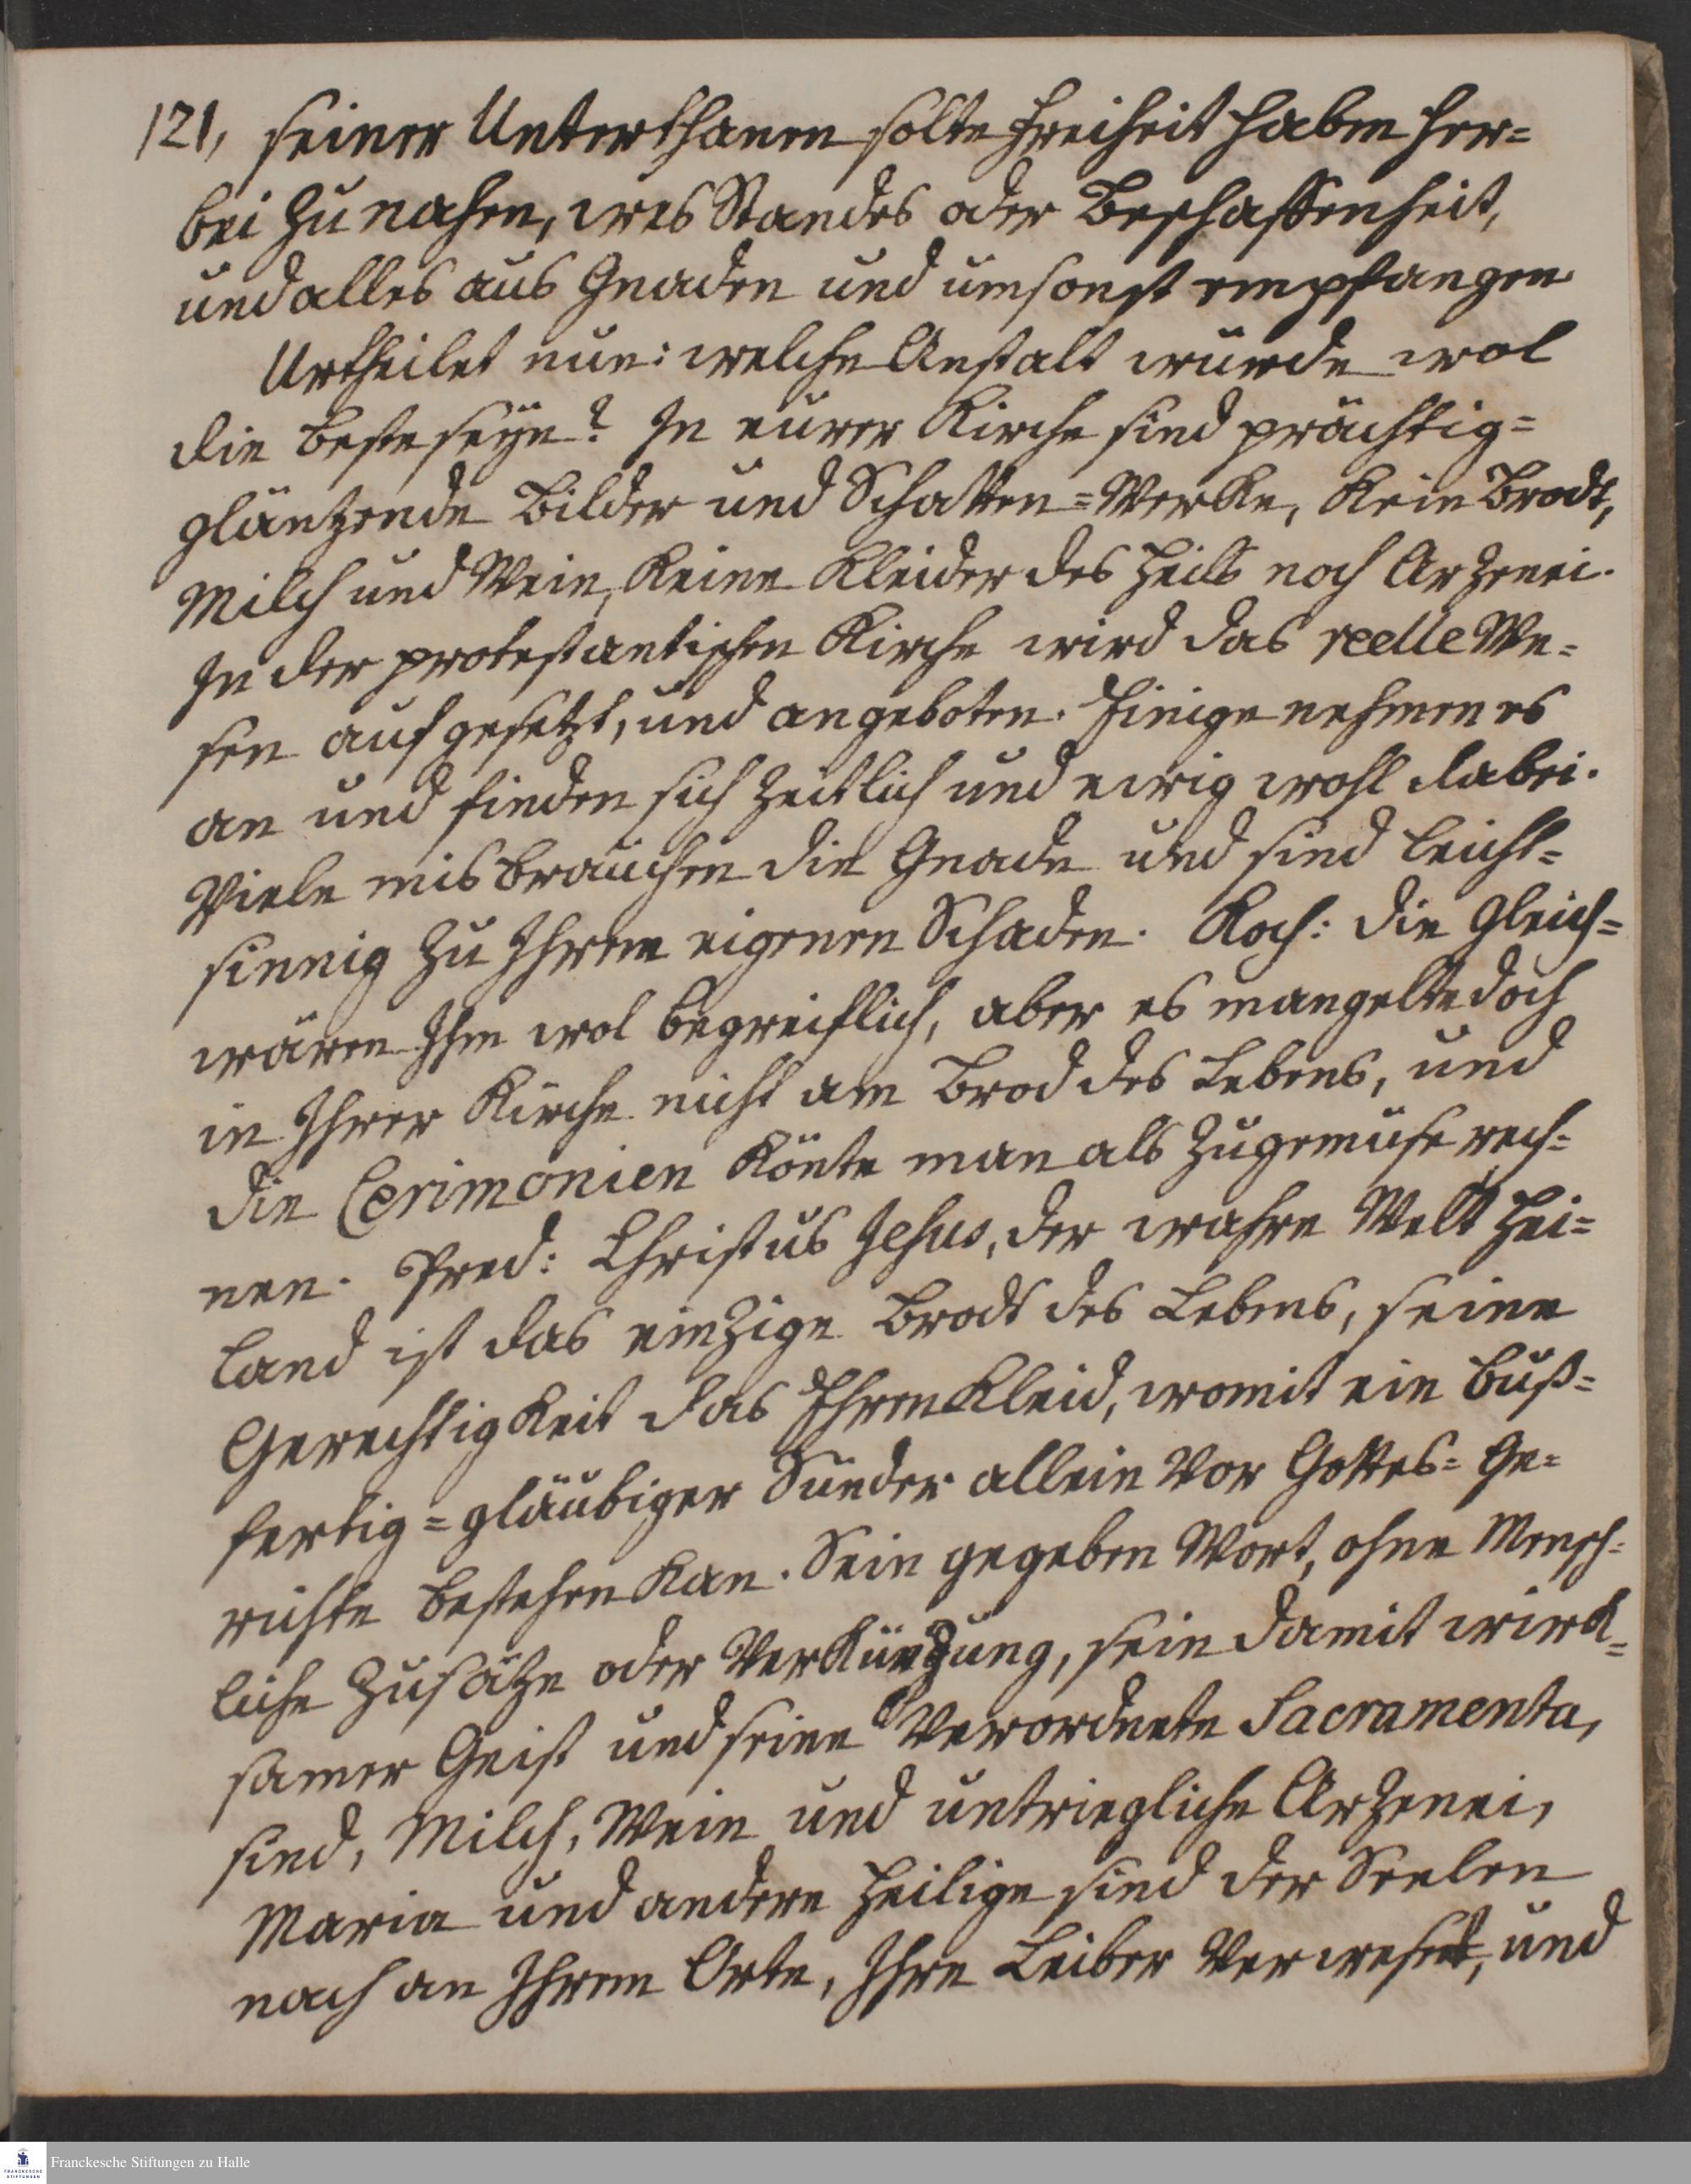 121, seiner Unterthanen solte Freiheit haben her=
bei zu nahen, wes Standes oder Beschaffenheit,
und alles aus Gnaden und umsonst empfangen
Urtheilet nun: welche Anstalt würde wol
die beste seyn? In eurer Kirche sind prächtig=
gläntzende Bilder und Schatten=Werke, kein Brodt,
Milch und Wein, keine Kleider des Heils noch Arzenei.
In der protestantischen Kirche wird das reelle We=
sen aufgesetzt, und angeboten. Einige nehmen es
an und finden sich zeitlich und ewig wohl dabei.
Viele misbrauchen die Gnade und sind leicht=
sinnig zu Ihrem eigenen Schaden. Koch: die Gleich=
wären Ihm wol begreiflich, aber es mangelte doch
in Ihrer Kirche nicht am Brod des Lebens, und
die Cerimonien könte man als Zugemüse rech=
nen. Pred: Christus Jesus, der wahre Welt Hei=
land ist das einzige Brodt des Lebens, seine
Gerechtigkeit das Ehrenkleid, womit ein buß=
fertig=gläubiger Sünder allein vor Gottes=Ge=
richte bestehen kan. Sein gegeben Wort, ohne Mensch=
liche Zusätze oder Verkürzung, sein damit wirk=
samer Geist und seine Verordnete Sacramenta,
sind, Milch, Wein und untriegliche Arzenei,
Maria und andere Heilige sind der Seelen
nach an Ihrem Orte, Ihre Leiber verweset, und
Franckesche Stiftungen zu Halle
FRANCKESCHE
STIFTUNGEN